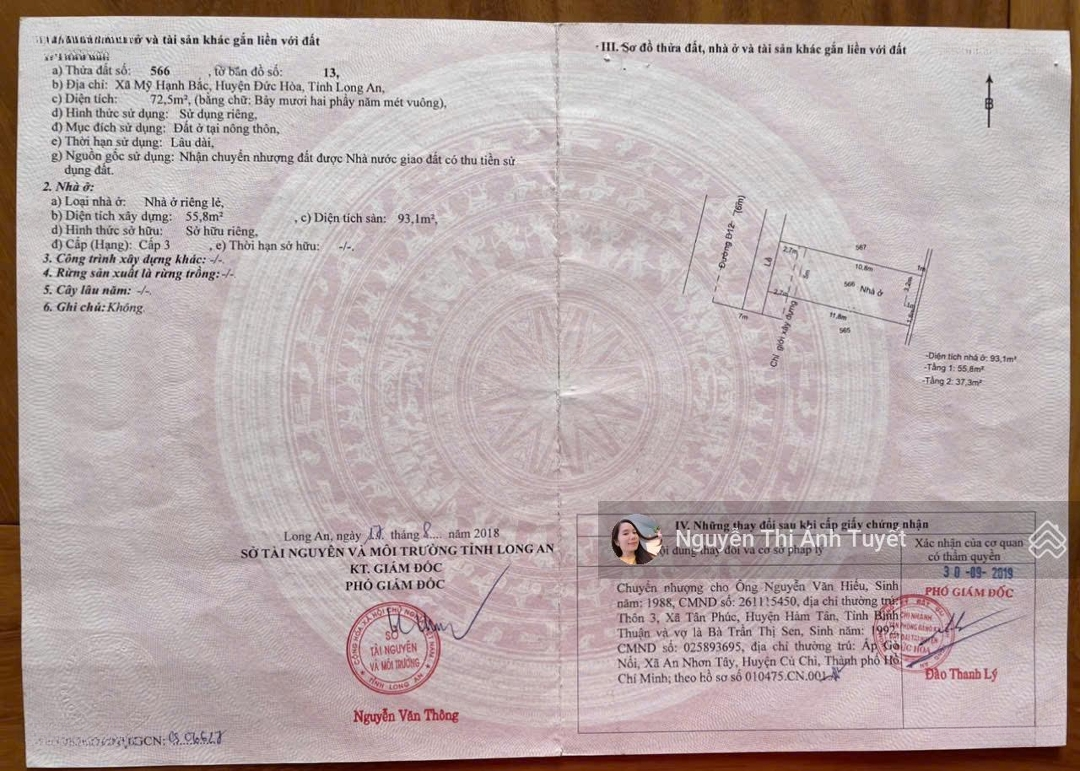 ở và tài sản khác gắn liền với đất
a) Thửa đất số: 566 , tờ bản đồ số: 13,
b) Địa chỉ: Xã Mỹ Hạnh Bắc, Huyện Đức Hòa, Tỉnh Long An,
c) Diện tích: 72,5m², (bằng chữ: Bảy mươi hai phẩy năm mét vuông),
d) Hình thức sử dụng: Sử dụng riêng,
đ) Mục đích sử dụng: Đất ở tại nông thôn,
e) Thời hạn sử dụng: Lâu dài,
g) Nguồn gốc sử dụng: Nhận chuyển nhượng đất được Nhà nước giao đất có thu tiền sử
dụng đất.
2. Nhà ở:
a) Loại nhà ở: Nhà ở riêng lẻ,
b) Diện tích xây dựng: 55,8m² , c) Diện tích sàn: 93,1m²,
d) Hình thức sở hữu: Sở hữu riêng,
đ) Cấp (Hạng): Cấp 3 , e) Thời hạn sở hữu: -/-.
3. Công trình xây dựng khác: -/-.
4. Rừng sản xuất là rừng trồng: -/-
5. Cây lâu năm: -/-.
6. Ghi chú: Không.
Long An, ngày 17 tháng 8 năm 2018
SỞ TÀI NGUYÊN VÀ MÔI TRƯỜNG TỈNH LONG AN
KT. GIÁM ĐỐC
PHÓ GIÁM ĐỐC
SỞ
TÀI NGUYÊN
VÀ MÔI TRƯỜNG
TỈNH LONG AN
Nguyễn Văn Thông
GCN:
III. Sơ đồ thửa đất, nhà ở và tài sản khác gắn liền với đất
B
Đường D12
Lề
2,7m
567
10,8m
1m
566
Nhà ở
3,2m
2,7m
11,8m
565
7m
Chỉ giới xây dựng
-Diện tích nhà ở: 93,1m²
-Tầng 1: 55,8m²
-Tầng 2: 37,3m²
IV. Những thay đổi sau khi cấp giấy chứng nhận
Nguyễn Thị Ánh Tuyết
ội dung thay đổi và cơ sở pháp lý
Xác nhận của cơ quan
có thẩm quyền
30-09-2019
PHÓ GIÁM ĐỐC
Chuyển nhượng cho Ông Nguyễn Văn Hiếu, Sinh
năm: 1988, CMND số: 261115450, địa chỉ thường trú:
Thôn 3, Xã Tân Phúc, Huyện Hàm Tân, Tỉnh Bình
Thuận và vợ là Bà Trần Thị Sen, Sinh năm: 1992,
CMND số: 025893695, địa chỉ thường trú: Ấp Gò
Nổi, Xã An Nhơn Tây, Huyện Củ Chi, Thành phố Hồ
Chí Minh; theo hồ sơ số 010475.CN.001
CHI NHÁNH
Đào Thanh Lý